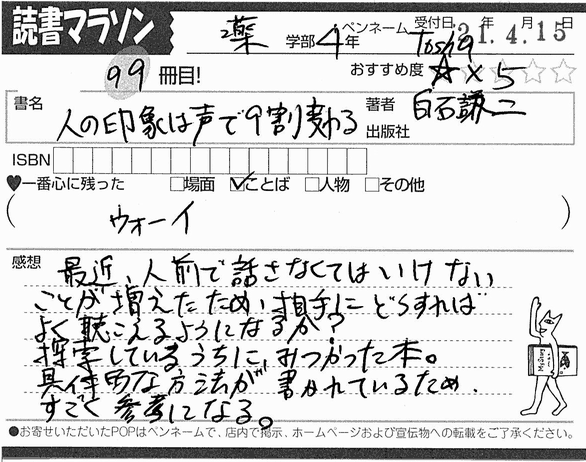 読書マラソン
薬 学部 4年 ペンネーム Tosha 受付日 21年4月15日
99 冊目! おすすめ度 ☆×5
書名 人の印象は声で9割変わる 著者 白石謙二
出版社
ISBN
♥一番心に残った □場面 ☑ことば □人物 □その他
( ウォーイ )
感想 最近、人前で話さなくてはいけない
ことが増えたため、相手にどうすれば
よく聴こえるようになるか?
探索しているうちに、みつかった本。
具体的な方法が書かれているため、
すごく参考になる。
●お寄せいただいたPOPはペンネームで、店内で掲示、ホームページおよび宣伝物への転載をご了承ください。